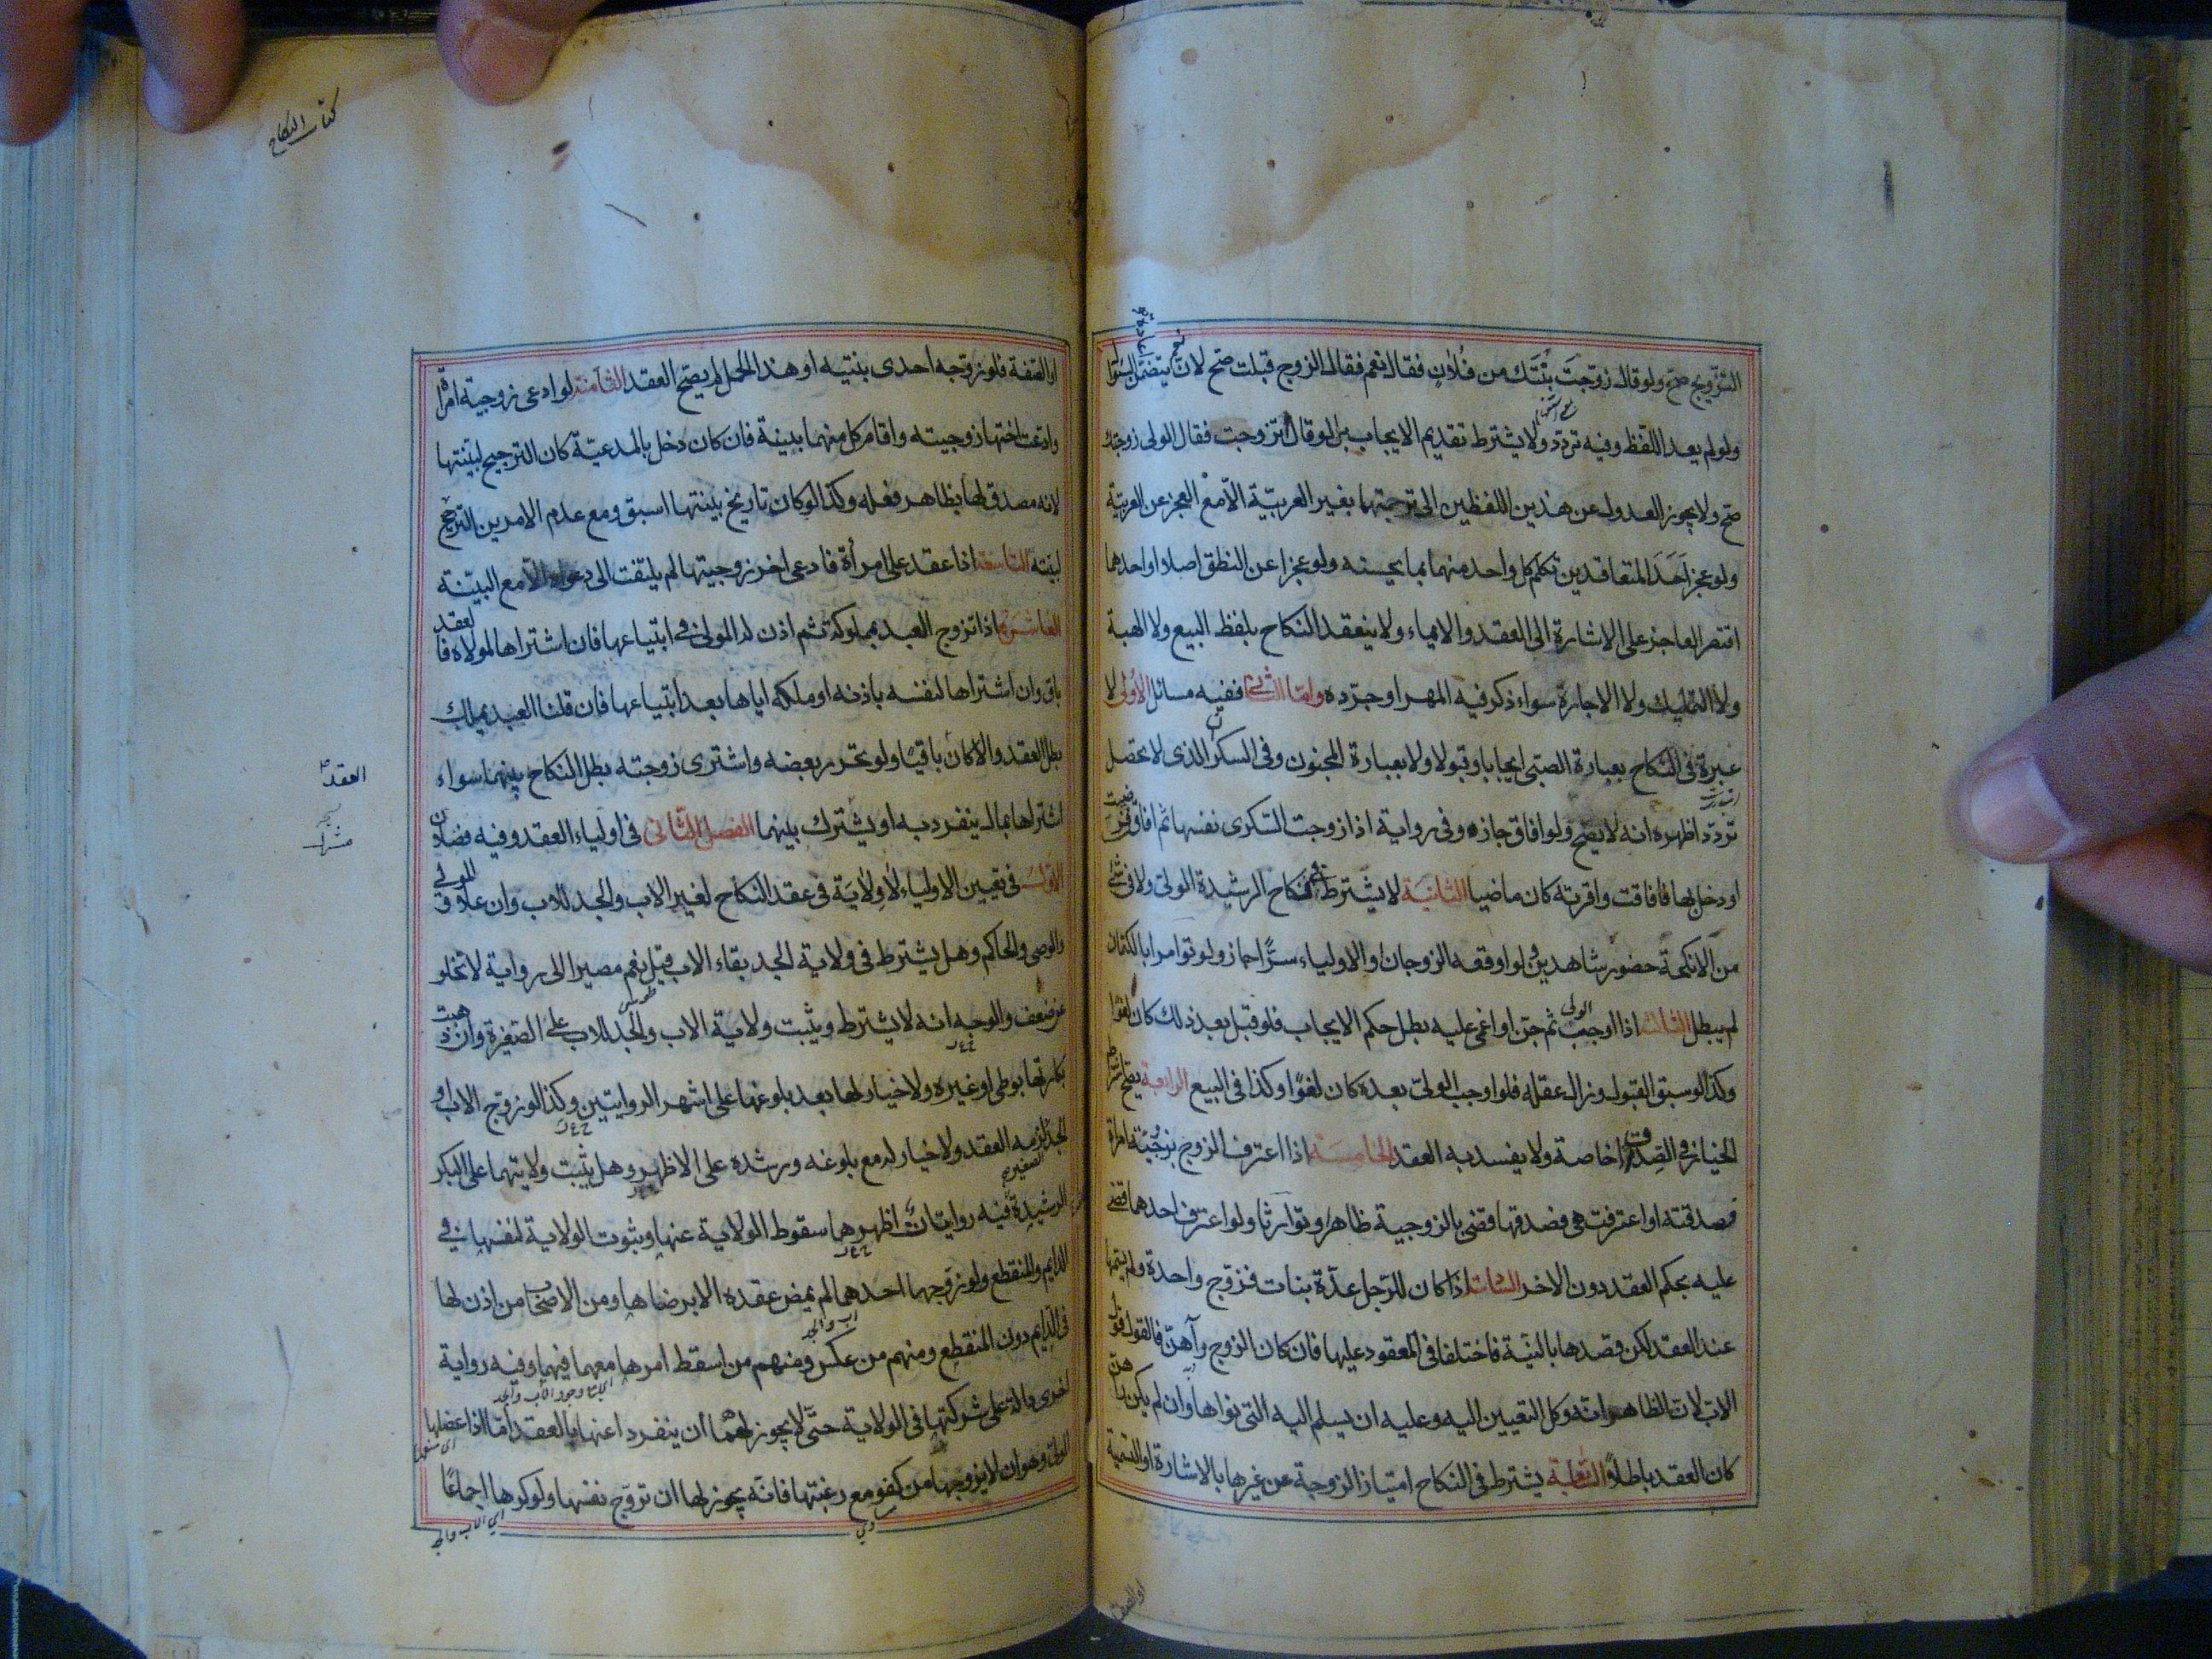 التزويج صح ولو قال زوجت بنتك من فلان فقال نعم فقال الزوج قبلت صح لان نعم يتضمن السوال
ولو لم يعد اللفظ وفيه تردد ولا يشترط تقديم الايجاب بل لو قال تزوجت فقال الولى زوجتك
صح ولا يجوز العدول عن هذين اللفظين الى ترجمتهما بغير العربية الا مع العجز عن العربية
ولو عجز احد المتعاقدين تكلم كل واحد منهما بما يحسنه ولو عجزا عن النطق اصلا او احدهما
اقتصر العاجز على الاشارة الى العقد والايماء ولا ينعقد النكاح بلفظ البيع ولا الهبة
ولا التمليك ولا الاجارة سواء ذكر فيه المهر او جرده واما الثانى ففيه مسائل الاولى لا
عبرة فى النكاح بعبارة الصبى ايجابا وقبولا ولا بعبارة المجنون وفى السكران الذى لا يحصل
تردد اظهره انه لا يصح ولو افاق جازه وفى رواية اذا زوجت السكرى نفسها ثم افاقت فرضيت
او دخل بها فافاقت واقرته كان ماضيا الثانية لا يشترط فى نكاح الرشيدة الولى ولا فى شئ
من الانكحة حضور شاهدين ولو اوقعه الزوجان او الاولياء سرا جاز ولو توامرا بالكتمان
لم يبطل الثالثة اذا اوجب الولى ثم جن او اغمى عليه بطل حكم الايجاب فلو قبل بعد ذلك كان لغوا
وكذا لو سبق القبول وزال عقله فلو اوجب الولى بعده كان لغوا وكذا فى البيع الرابعة يصح شرط
الخيار فى الصداق خاصة ولا يفسد به العقد الخامسة اذا اعترف الزوج بزوجية امراة
فصدقته او اعترفت هى فصدقها قضى بالزوجية ظاهرا وتوارثا ولو اعترف احدهما قضى
عليه بحكم العقد دون الاخر السادسة اذا كان للرجل عدة بنات فزوج واحدة ولم يسمها
عند العقد لكن قصدها بالنية فاختلفا فى المعقود عليها فان كان الزوج رآهن فالقول قول
الاب لان الظاهر انه وكل التعيين اليه وعليه ان يسلم اليه التى نواها وان لم يكن راهن
كان العقد باطلا السابعة يشترط فى النكاح امتياز الزوجة عن غيرها بالاشارة او التسمية
كتاب النكاح
او الصفة فلو زوجه احدى بنتيه او هذا الحمل لم يصح العقد الثامنة لو ادعى زوجية امراة
وادعت اختها زوجيته واقام كل منهما بينة فان كان دخل بالمدعية كان الترجيح لبينتها
لانه مصدق لها بظاهر فعله وكذا لو كان تاريخ بينتها اسبق ومع عدم الامرين الترجيح
لبينته التاسعة اذا عقد على امرأة فادعى اخر زوجيتها لم يلتفت الى دعواه الا مع البينة
العاشرة اذا تزوج العبد بمملوكة ثم اذن له المولى فى ابتياعها فان اشتراها لمولاه فالعقد
باق وان اشتراها لنفسه باذنه او ملكه اياها بعد ابتياعها فان قلنا العبد يملك
بطل العقد والا كان باقيا ولو تحرر بعضه واشترى زوجته بطل النكاح بينهما سواء
اشتراها بمال ينفرد به او يشترك بينهما الفصل الثانى فى اولياء العقد وفيه فصلان
الاول فى تعيين الاولياء لا ولاية فى عقد النكاح لغير الاب والجد للاب وان علا والمولى
والوصى والحاكم وهل يشترط فى ولاية الجد بقاء الاب قيل نعم مصيرا الى رواية لا تخلو
عن ضعف والوجه انه لا يشترط ويثبت ولاية الاب والجد للاب على الصغيرة وان ذهبت
بكارتها بوطى او غيره ولا خيار لها بعد بلوغها على اشهر الروايتين وكذا لو زوج الاب او
الجد لزمه العقد ولا خيار له مع بلوغه ورشده على الاظهر وهل يثبت ولايتهما على البكر
الرشيدة فيه روايتان اظهرهما سقوط الولاية عنها وثبوت الولاية لنفسها فى
الدايم والمنقطع ولو زوجها احدهما لم يمض عقده الا برضاها ومن الاصحاب من اذن لها
فى الدايم دون المنقطع ومنهم من عكس ومنهم من اسقط امرها معهما فيهما وفيه رواية
اخرى دالة على شركتها فى الولاية حتى لا يجوز لهما ان ينفردا عنها بالعقد اما اذا عضلها
الولى وهو ان لا يزوجها من كفو مع رغبتها فانه يجوز لها ان تزوج نفسها ولو كرها اجماعا
العقد